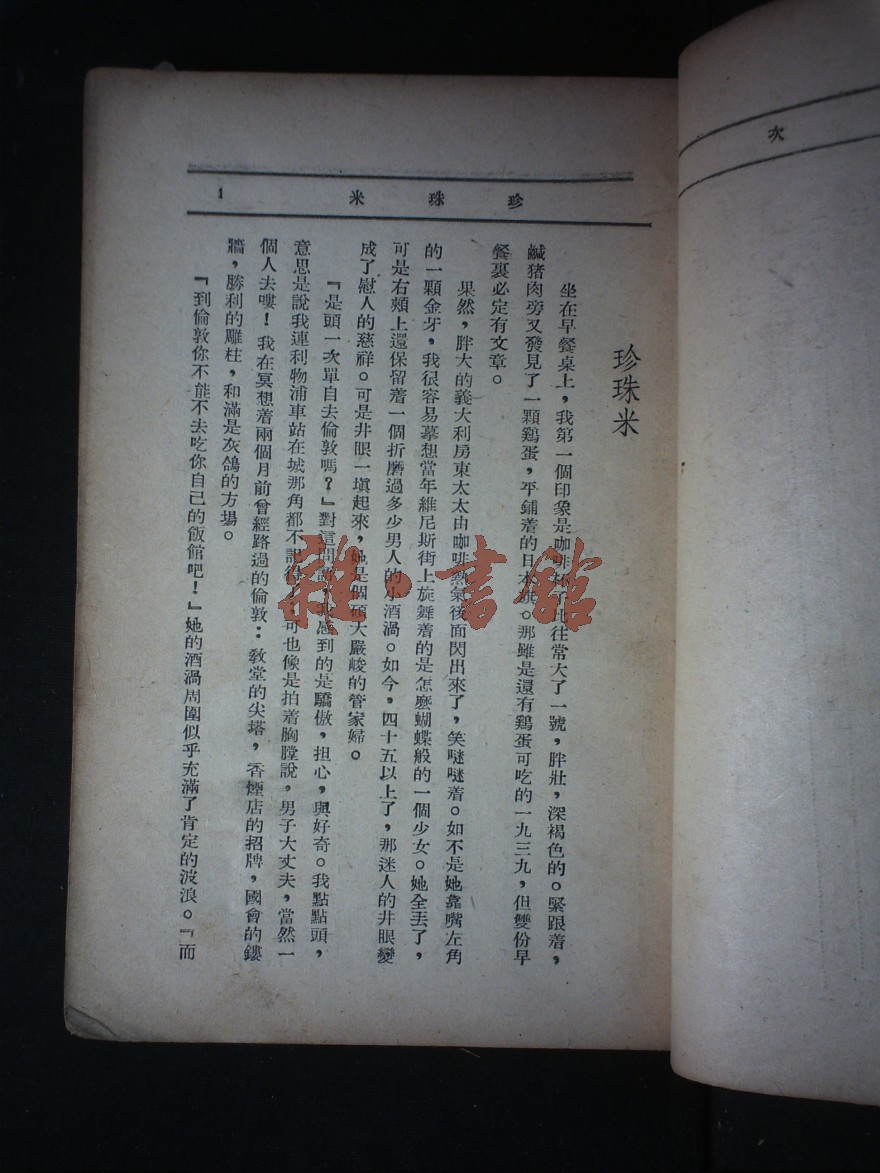 次
珍珠米
1
珍珠米
坐在早餐桌上，我第一個印象是咖啡杯子比往常大了一號，胖壯，深褐色的。緊跟着，
鹹猪肉旁又發見了一顆鷄蛋，平鋪着的日本旗。那雖是還有鷄蛋可吃的一九三九，但雙份早
餐裏必定有文章。
果然，胖大的義大利房東太太由咖啡熱氣後面閃出來了，笑瞇瞇着。如不是她靠嘴左角
的一顆金牙，我很容易摹想當年維尼斯街上旋舞着的是怎麽蝴蝶般的一個少女。她全丟了，
可是右頰上還保留着一個折磨過多少男人的小酒渦。如今，四十五以上了，那迷人的井眼變
成了慰人的慈祥。可是井眼一塡起來，她是個碩大嚴峻的管家婦。
『是頭一次單自去倫敦嗎？』對這問 我感到的是驕傲，担心，與好奇。我點點頭，
意思是說我連利物浦車站在城那角都不 可也像是拍着胸膛說，男子大丈夫，當然一
個人去嘍！我在冥想着兩個月前曾經路過的倫敦：敎堂的尖塔，香煙店的招牌，國會的鏤
牆，勝利的雕柱，和滿是灰鴿的方場。
『到倫敦你不能不去吃你自己的飯館吧！』她的酒渦周圍似乎充滿了肯定的波浪。『而
雜·書館